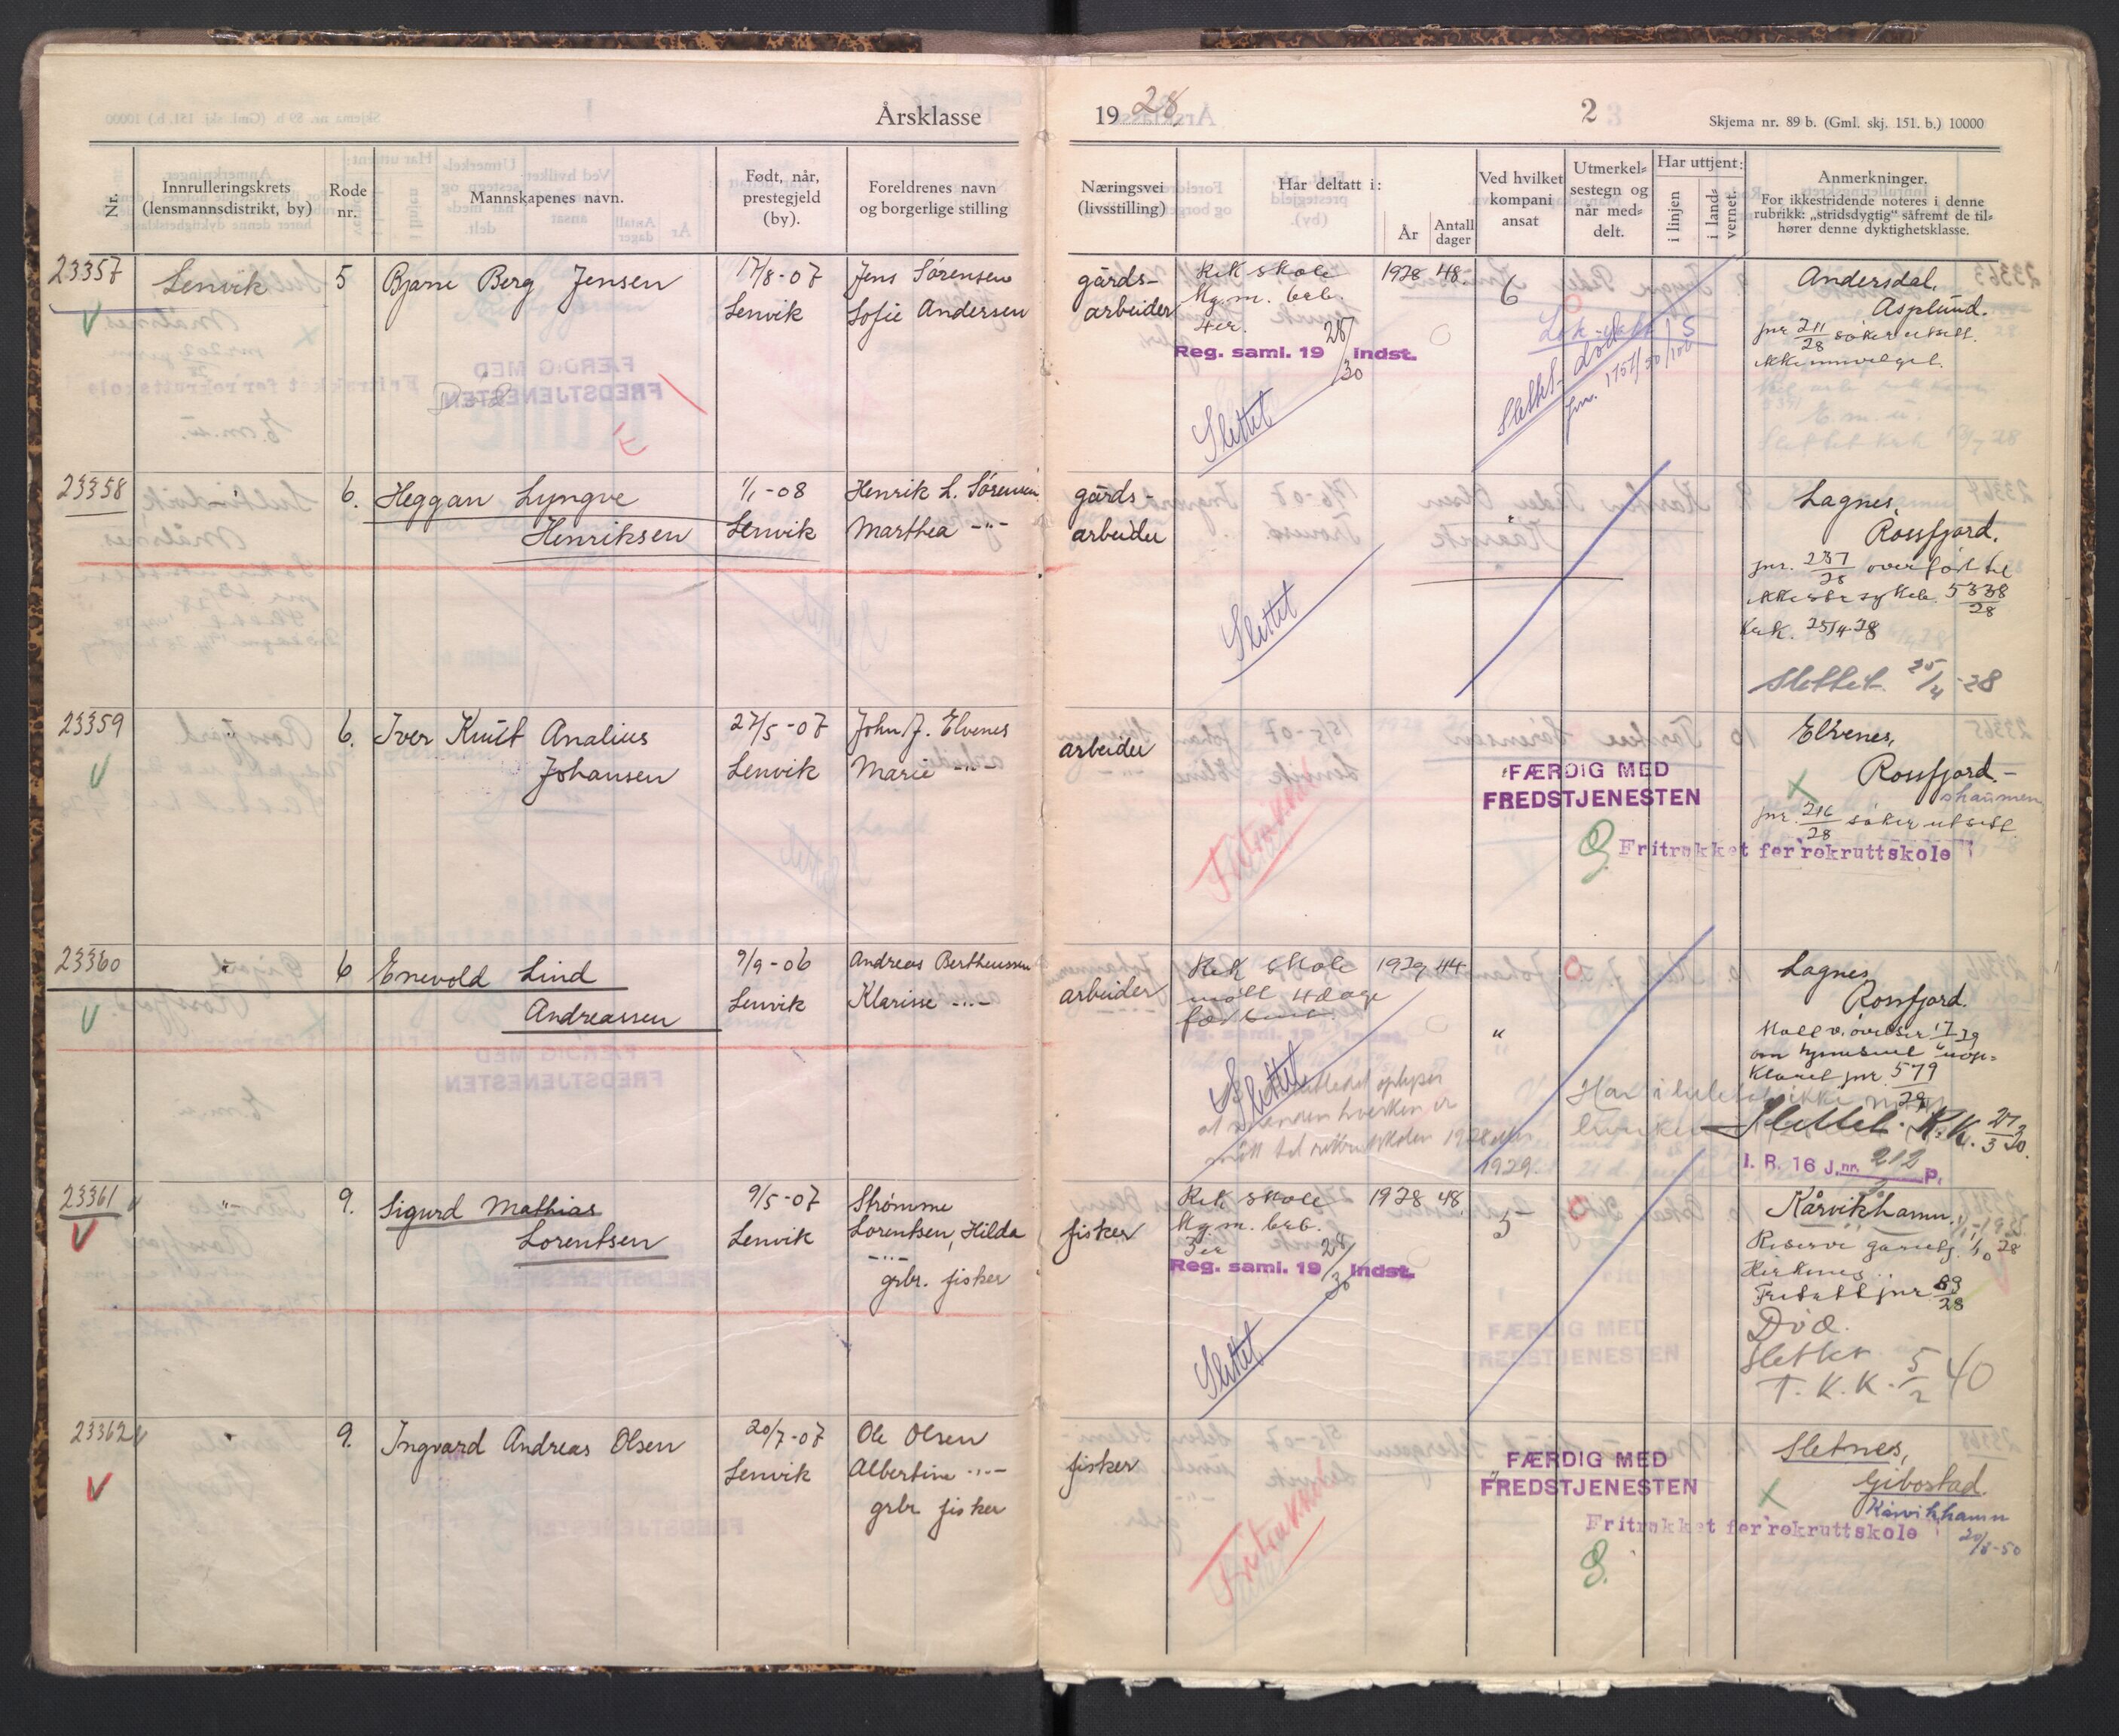 Årsklasse 1928
2
Skjema nr. 89 b. (Gml. skj. 151. b.) 10000
Nr.
Innrulleringskrets
(lensmannsdistrikt, by)
Rode
nr.
Mannskapenes navn.
Født, når,
prestegjeld
(by).
Foreldrenes navn
og borgerlige stilling
Næringsvei
(livsstilling)
Har deltatt i:
År
Antall
dager
Ved hvilket
kompani
ansat
Utmerkel-
sestegn og
når med-
delt.
Har uttjent:
i linjen
i land-
vernet.
Anmerkninger.
For ikkestridende noteres i denne
rubrikk: „stridsdygtig" såfremt de til-
hører denne dyktighetsklasse.
23357 Lenvik 5 Bjarne Berg Jensen
17/8-07
Lenvik
Jens Sørensen
Sofie Andersen
gårds-
arbeider
Rek skole 1928 48.
Mg.m. beb.
4er.
Reg. saml. 19 28/30 Indst.
Slettet
6
Slettet død
jnr. 1757/30/100
Andersdal,
Asplund.
jnr 211/28 søker utsett.
ikke innvilget.
Død
23358 " 6. Heggan Lyngve
Henriksen
1/1-08
Lenvik
Henrik L. Sørensen
Marthea -"-
gårds-
arbeider
Slettet
"
Lagnes,
Rossfjord.
jnr. 237/28 overført til
5338/28
K.r.k. 25/4 28
Slettet 25/4-28
23359 " 6. Iver Knut Analius
Johansen
27/5-07
Lenvik
John J. Elvenes
Marie -"-
arbeider
Fritrukket
FÆRDIG MED
FREDSTJENESTEN
Elvenes,
Rossfjord-
straumen
jnr. 216/28 søker utsett.
Fritrukket for rekruttskole
23360 " 6 Enevold Lind
Andreassen
9/9-06
Lenvik
Andreas Bertheussen
Klarisse -"-
arbeider
Rek skole 1929 44
møtt 4 dage
for sent.
Slettet
oplyser
at manden hverken er
møtt til rekruttskolen 1928 eller
1929.
"
Lagnes,
Rossfjord.
klaret jnr 579/29
Slettet. R.K. 27/3 30.
I. R. 16 J.nr. 212 P.
23361 " 9. Sigurd Mathias
Lorentsen
9/5-07
Lenvik
Strømme
Lorentsen, Hilda
-"-
grbr. fisker
fisker
Rek skole 1928 48
Mg.m. beb.
3er
Reg. saml. 19 28/30 Indst.
Slettet
5
Kårvikhamn.
Kirkenes.
Fritatt jnr 83/28
Død.
Slettet
T.K.K. 5/2 40
23362 " 9. Ingvard Andreas Olsen
20/7-07
Lenvik
Ole Olsen
Albertine -"-
grbr fisker
fisker
Fritrukket
FÆRDIG MED
FREDSTJENESTEN
Sletnes,
Gibostad.
Kårvikhamn
20/8-50
Fritrukket for rekruttskole